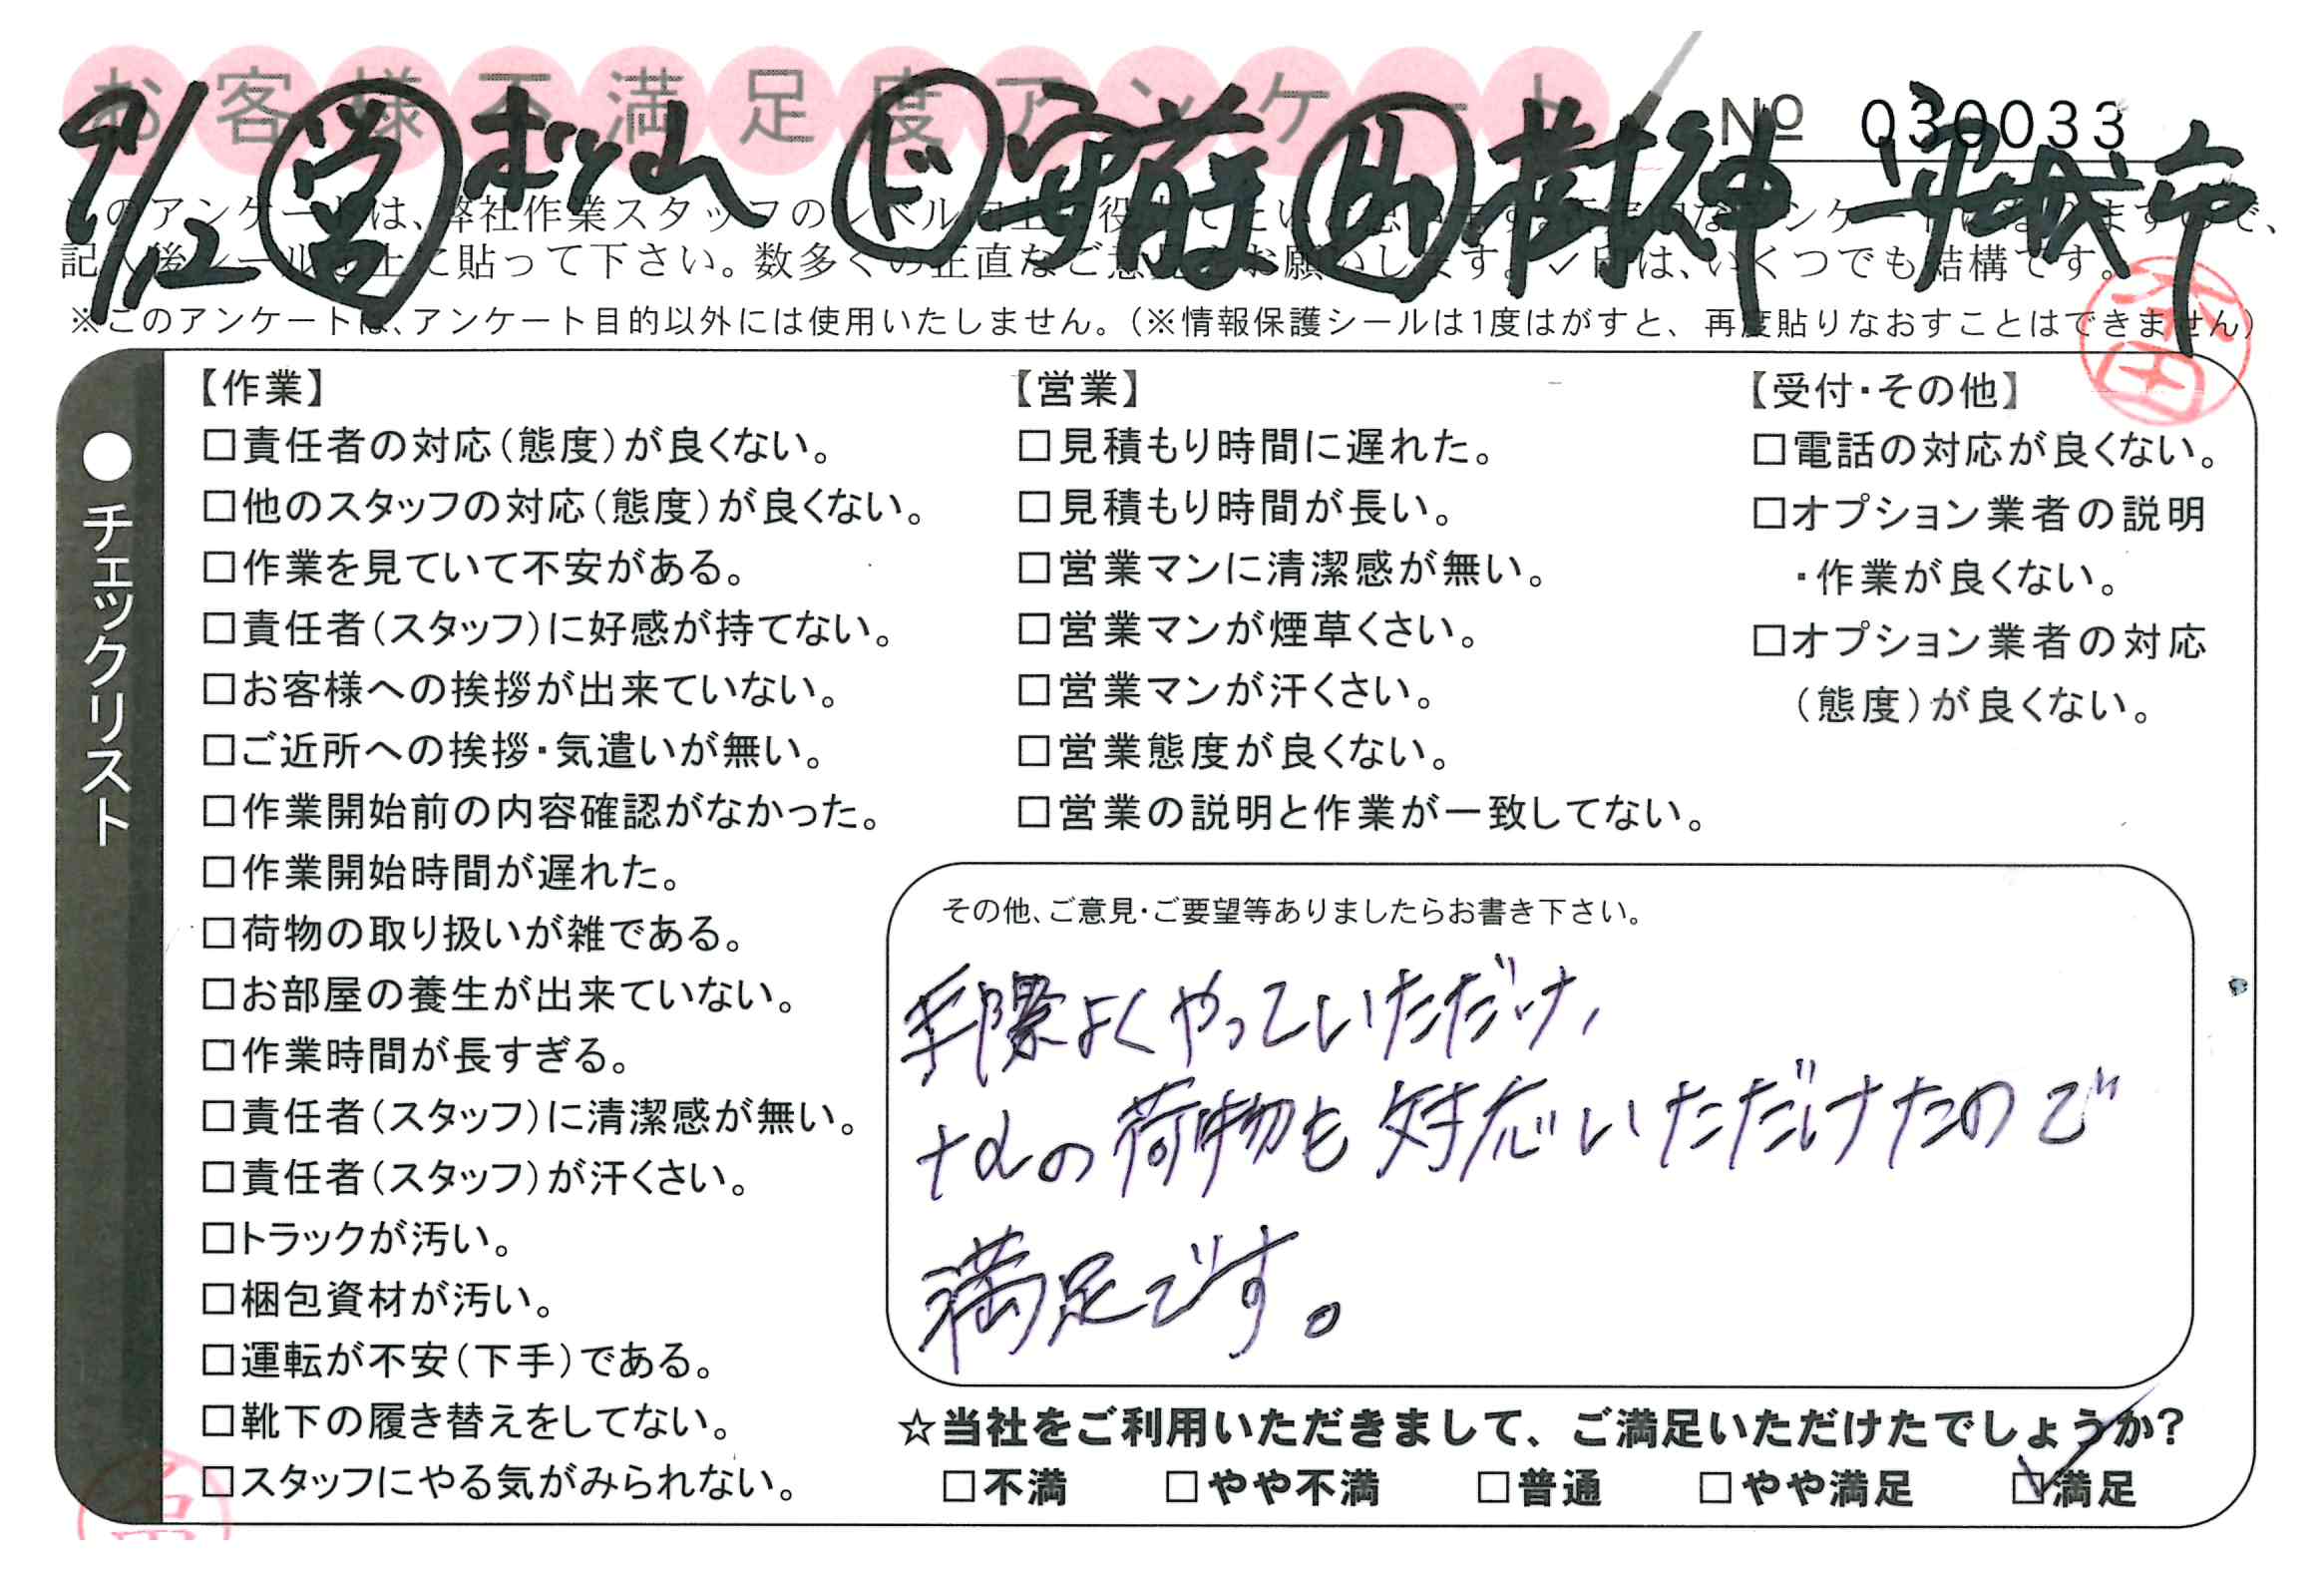 お客様不満足度アンケート
№ 030033
9/12 営 松山 ド 安藤 助 市
記入後シール 上に貼って下さい。数多くの正直なご意見をお願いします。✓印は、いくつでも結構です。
※このアンケートは、アンケート目的以外には使用いたしません。(※情報保護シールは1度はがすと、再度貼りなおすことはできません)
●チェックリスト
【作業】
□責任者の対応(態度)が良くない。
□他のスタッフの対応(態度)が良くない。
□作業を見ていて不安がある。
□責任者(スタッフ)に好感が持てない。
□お客様への挨拶が出来ていない。
□ご近所への挨拶・気遣いが無い。
□作業開始前の内容確認がなかった。
□作業開始時間が遅れた。
□荷物の取り扱いが雑である。
□お部屋の養生が出来ていない。
□作業時間が長すぎる。
□責任者(スタッフ)に清潔感が無い。
□責任者(スタッフ)が汗くさい。
□トラックが汚い。
□梱包資材が汚い。
□運転が不安(下手)である。
□靴下の履き替えをしてない。
□スタッフにやる気がみられない。
【営業】
□見積もり時間に遅れた。
□見積もり時間が長い。
□営業マンに清潔感が無い。
□営業マンが煙草くさい。
□営業マンが汗くさい。
□営業態度が良くない。
□営業の説明と作業が一致してない。
【受付・その他】
□電話の対応が良くない。
□オプション業者の説明
・作業が良くない。
□オプション業者の対応
(態度)が良くない。
その他、ご意見・ご要望等ありましたらお書き下さい。
手際よくやっていただけ、
+αの荷物も対応いただけたので
満足です。
☆当社をご利用いただきまして、ご満足いただけたでしょうか?
□不満 □やや不満 □普通 □やや満足 ☑満足